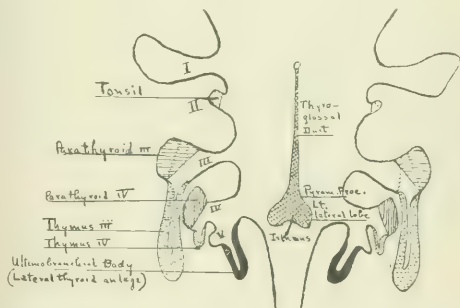 I
Tonsil
II
Parathyroid III
III
Parathyroid IV
IV
Thymus III
Thymus IV
V
Ultimobranchial Body
(Lateral thyroid anlage)
Thyro-
glossal
Duct
Pyram. Proc.
Lt.
lateral lobe
Isthmus